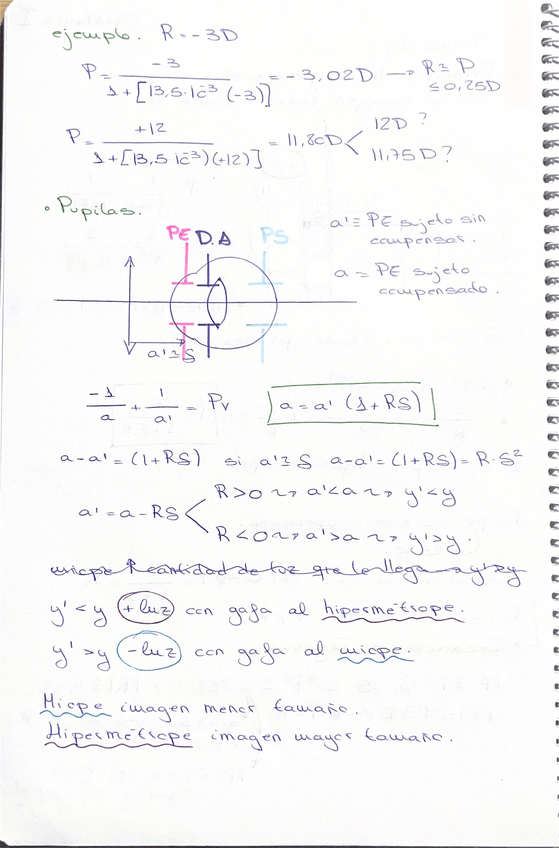 ejemplo. R=-3D
P= -3 / 1+[13,5·10^-3 (-3)] = -3,02D → R≅P ≤0,25D
P= +12 / 1+[13,5·10^-3)(+12)] = 11,80D < 12D ?
11,75D?
• Pupilas.
PE D.A PS
a'≡ PE sujeto sin
compensar.
a = PE sujeto
compensado.
a'≅S
-1/a + 1/a' = Pv a=a' (1+RS)
a-a'=(1+RS) si a'≅S a-a'=(1+RS)=R·S²
a'=a-RS < R>0 ~> a'<a ~> y'<y
R<0 ~> a'>a ~> y'>y.
miope ↑ cantidad de luz que le llega
y'<y +luz con gafa al hipermétrope.
y'>y -luz con gafa al miope.
Miope imagen menor tamaño.
Hipermétrope imagen mayor tamaño.